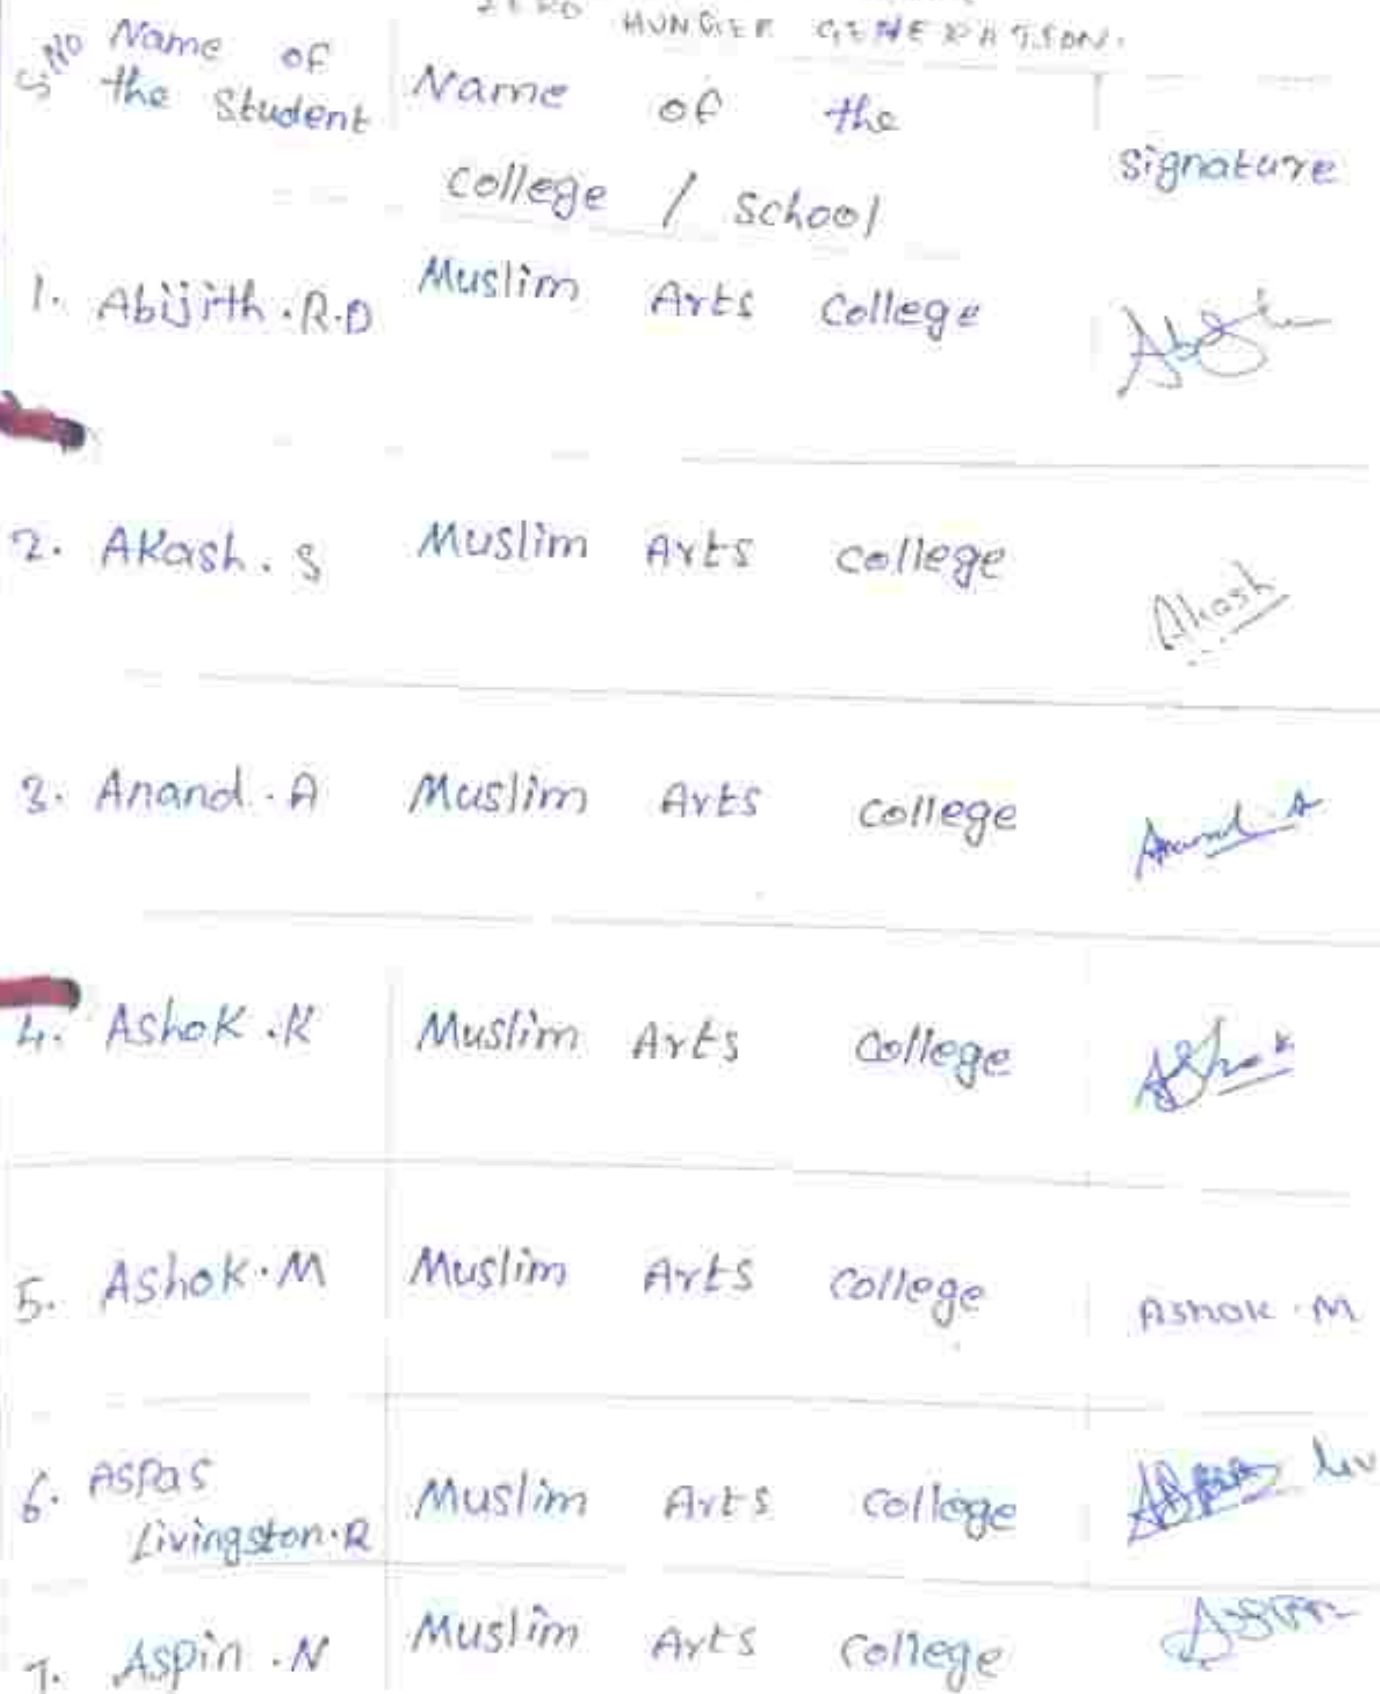 ZERO HUNGER GENERATION.
S.No Name of the Student Name of the College / School Signature
1. Abijith.R.D Muslim Arts College
2. Akash.S Muslim Arts College Akash
3. Anand.A Muslim Arts College Anand.A
4. Ashok.K Muslim Arts College Ashok
5. Ashok.M Muslim Arts College Ashok.M
6. Aspas Livingston.R Muslim Arts College
7. Aspin.N Muslim Arts College Aspin